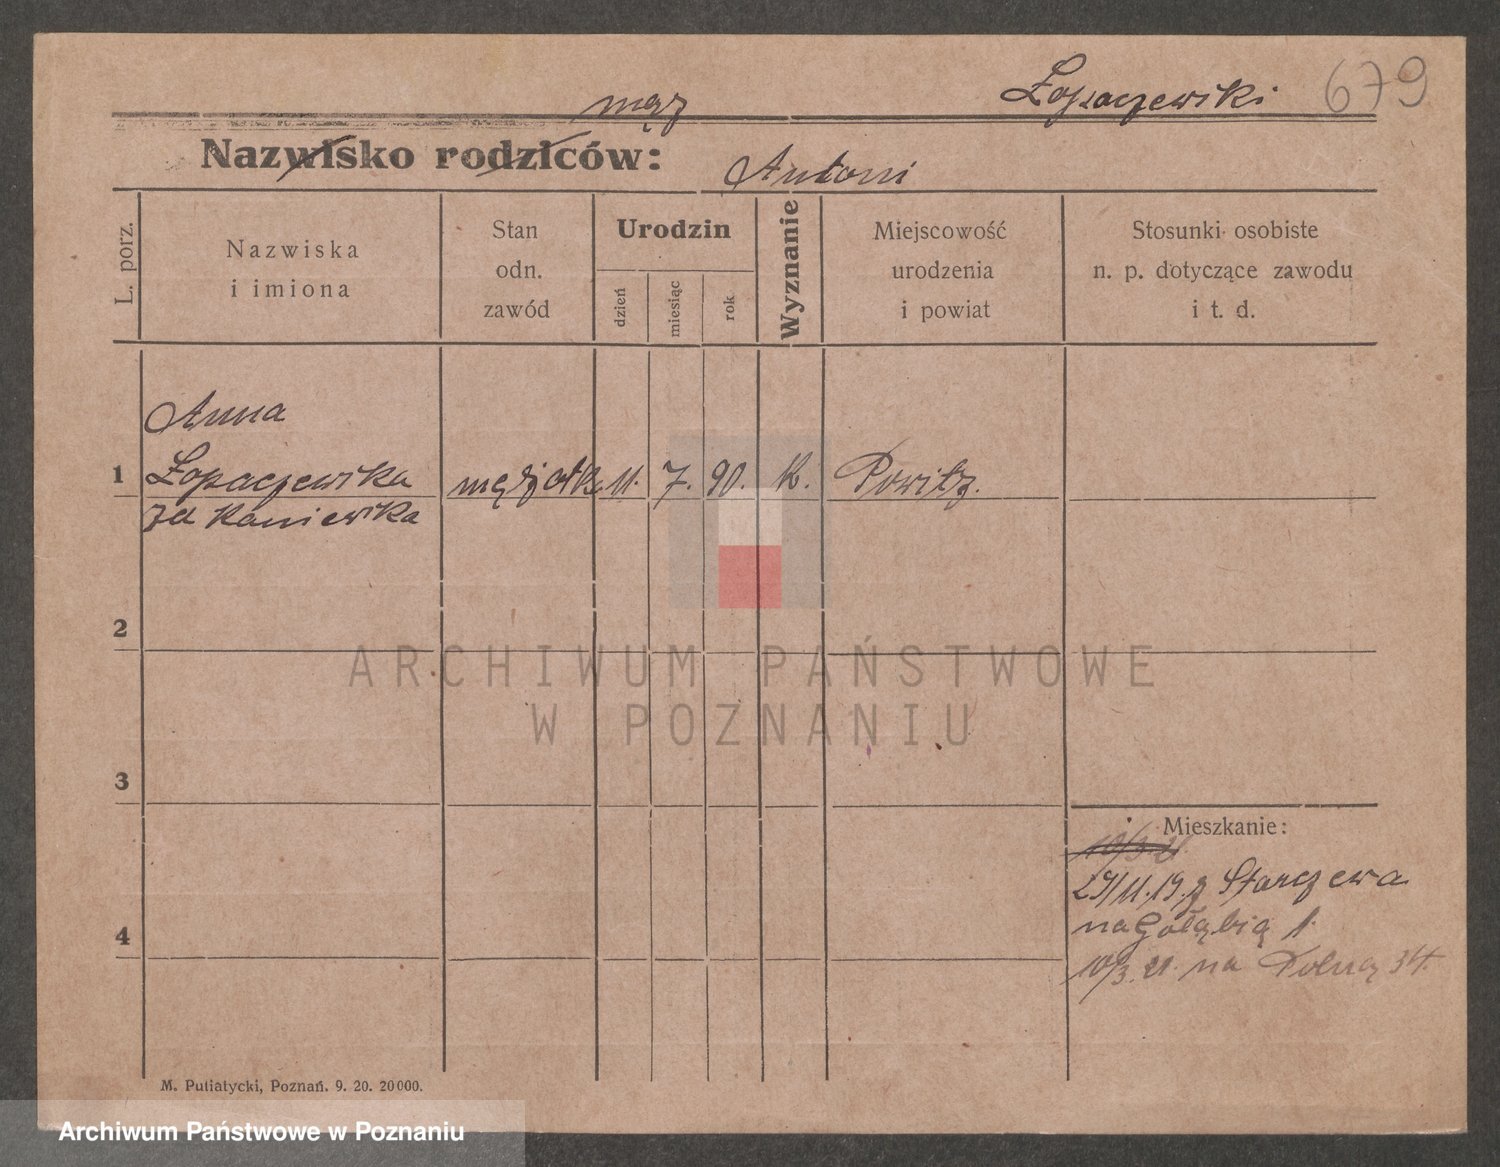 mąż
Łopaczewski 679
Nazwisko rodziców:
Antoni
L. porz.
Nazwiska
i imiona
Stan
odn.
zawód
Urodzin
dzień
miesiąc
rok
Wyznanie
Miejscowość
urodzenia
i powiat
Stosunki osobiste
n. p. dotyczące zawodu
i t. d.
Anna
1 Łopaczewska 11. 7. 90. K. Powitz.
Kaniewska
2
3
4
Mieszkanie:
10/3.21.
29/11.19. z Starczewa
na Gołębią 1.
10/3.21. na Polną 34.
M. Putiatycki, Poznań. 9. 20. 20000.
ARCHIWUM PAŃSTWOWE
W POZNANIU
Archiwum Państwowe w Poznaniu